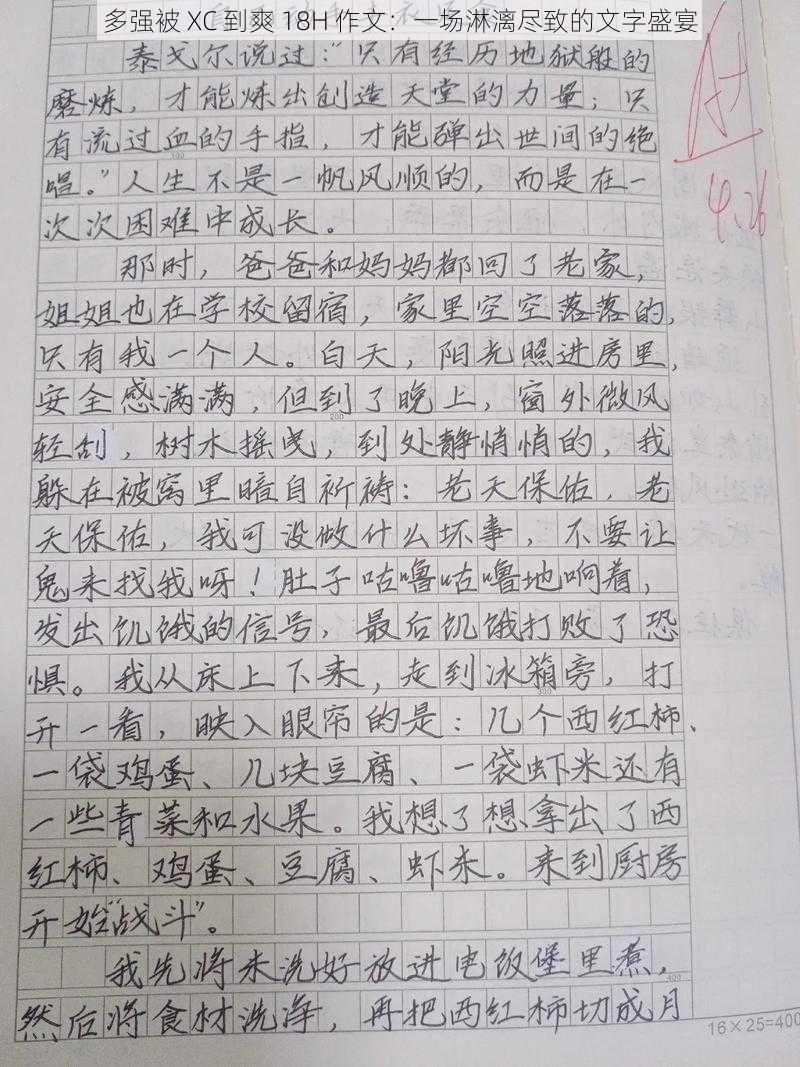 多强被 XC 到爽 18H 作文：一场淋漓尽致的文字盛宴
泰戈尔说过：“只有经历地狱般的
磨炼，才能炼出创造天堂的力量；只
有流过血的手指，才能弹出世间的绝
唱。”人生不是一帆风顺的，而是在一
次次困难中成长。
那时，爸爸和妈妈都回了老家，
姐姐也在学校留宿，家里空空落落的，
只有我一个人。白天，阳光照进房里，
安全感满满，但到了晚上，窗外微风
轻刮，树木摇曳，到处静悄悄的，我
躲在被窝里暗自祈祷：老天保佑，老
天保佑，我可没做什么坏事，不要让
鬼来找我呀！肚子咕噜咕噜地响着，
发出饥饿的信号，最后饥饿打败了恐
惧。我从床上下来，走到冰箱旁，打
开一看，映入眼帘的是：几个西红柿、
一袋鸡蛋、几块豆腐、一袋虾米还有
一些青菜和水果。我想了想拿出了西
红柿、鸡蛋、豆腐、虾米。来到厨房
开始“战斗”。
我先将米洗好放进电饭堡里煮，
然后将食材洗净，再把西红柿切成月
16×25=400
4.26